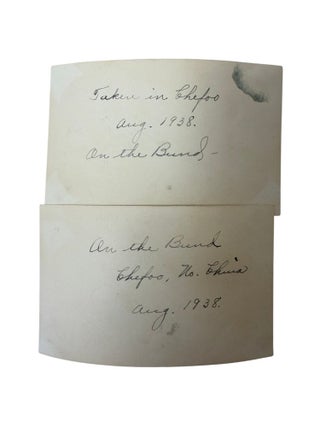 Taken in Chefoo
Aug. 1938.
On the Bund -
On the Bund
Chefoo, No. China
Aug. 1938.